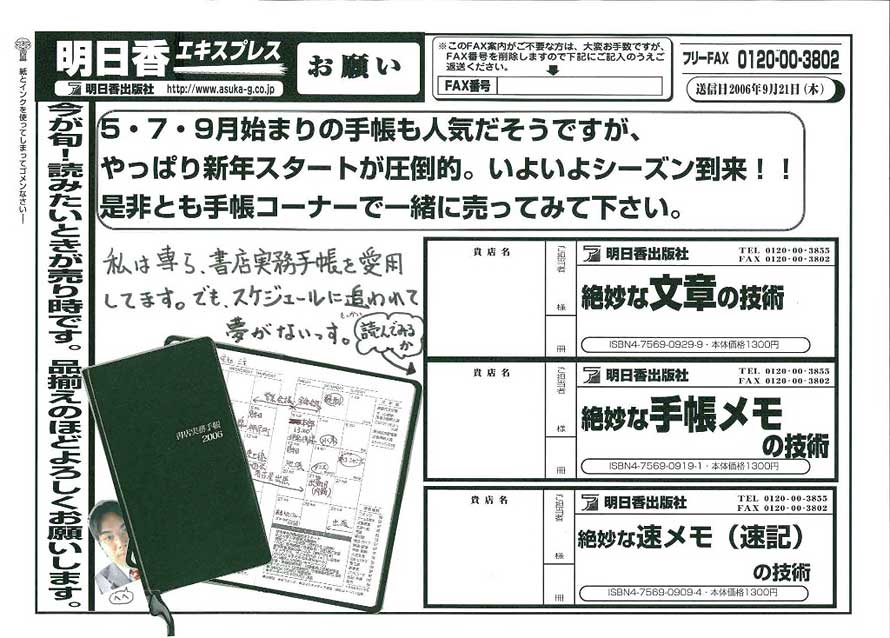 紙とインクを使ってしまってゴメンなさいー
明日香エキスプレス
明日香出版社 http://www.asuka-g.co.jp
お願い
※このFAX案内がご不要な方は、大変お手数ですが、
FAX番号を削除しますので下記にご記入のうえご
返送ください。
FAX番号
フリーFAX 0120-00-3802
送信日2006年9月21日(木)
今が旬!読みたいときが売り時です。品揃えのほどよろしくお願いします。
5・7・9月始まりの手帳も人気だそうですが、
やっぱり新年スタートが圧倒的。いよいよシーズン到来!!
是非とも手帳コーナーで一緒に売ってみて下さい。
私は専ら、書店実務手帳を愛用
してます。でも、スケジュールに追われて
夢がないっす。
読んでみる
か
書店実務手帳
2006
貴店名
ご担当者
様
冊
明日香出版社
TEL 0120-00-3855
FAX 0120-00-3802
絶妙な文章の技術
ISBN4-7569-0929-9・本体価格1300円
貴店名
ご担当者
様
冊
明日香出版社
TEL 0120-00-3855
FAX 0120-00-3802
絶妙な手帳メモ
の技術
ISBN4-7569-0919-1・本体価格1300円
貴店名
ご担当者
様
冊
明日香出版社
TEL 0120-00-3855
FAX 0120-00-3802
絶妙な速メモ(速記)
の技術
ISBN4-7569-0909-4・本体価格1300円